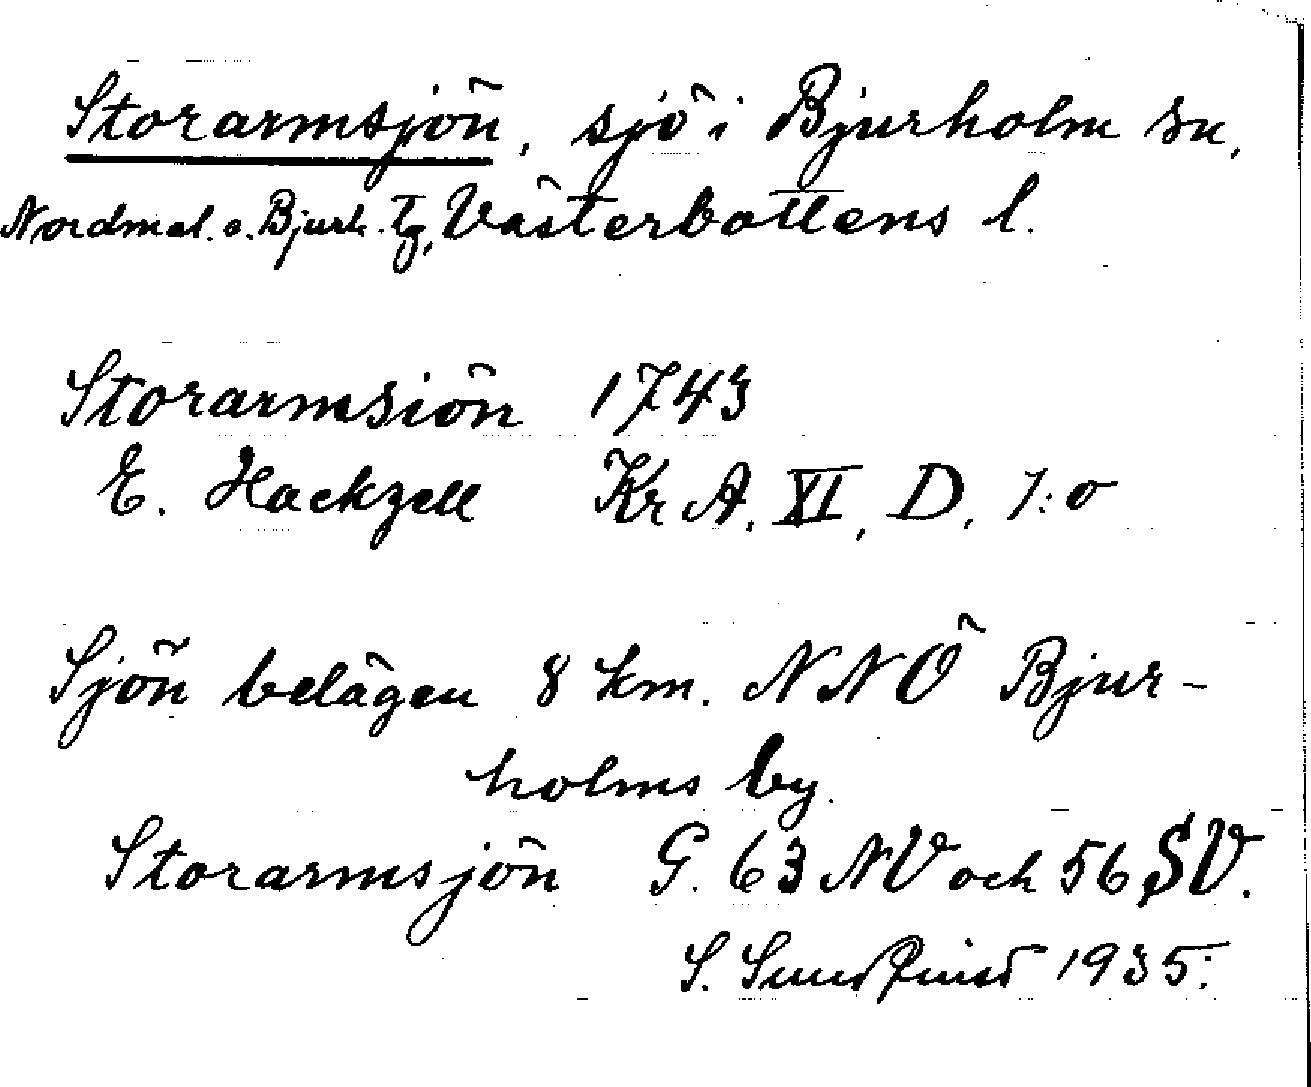 Storarmsjön, sjö i Bjurholm sn,
Nordmal. o. Bjurh. tg, Västerbottens l.
Storarmsiön 1743
E. Hackzell Kr A, XI, D, 1:o
Sjön belägen 8 km. NNÖ Bjur-
holms by.
Storarmsjön G. 63 NV och 56 SV.
S. Sundquist 1935.